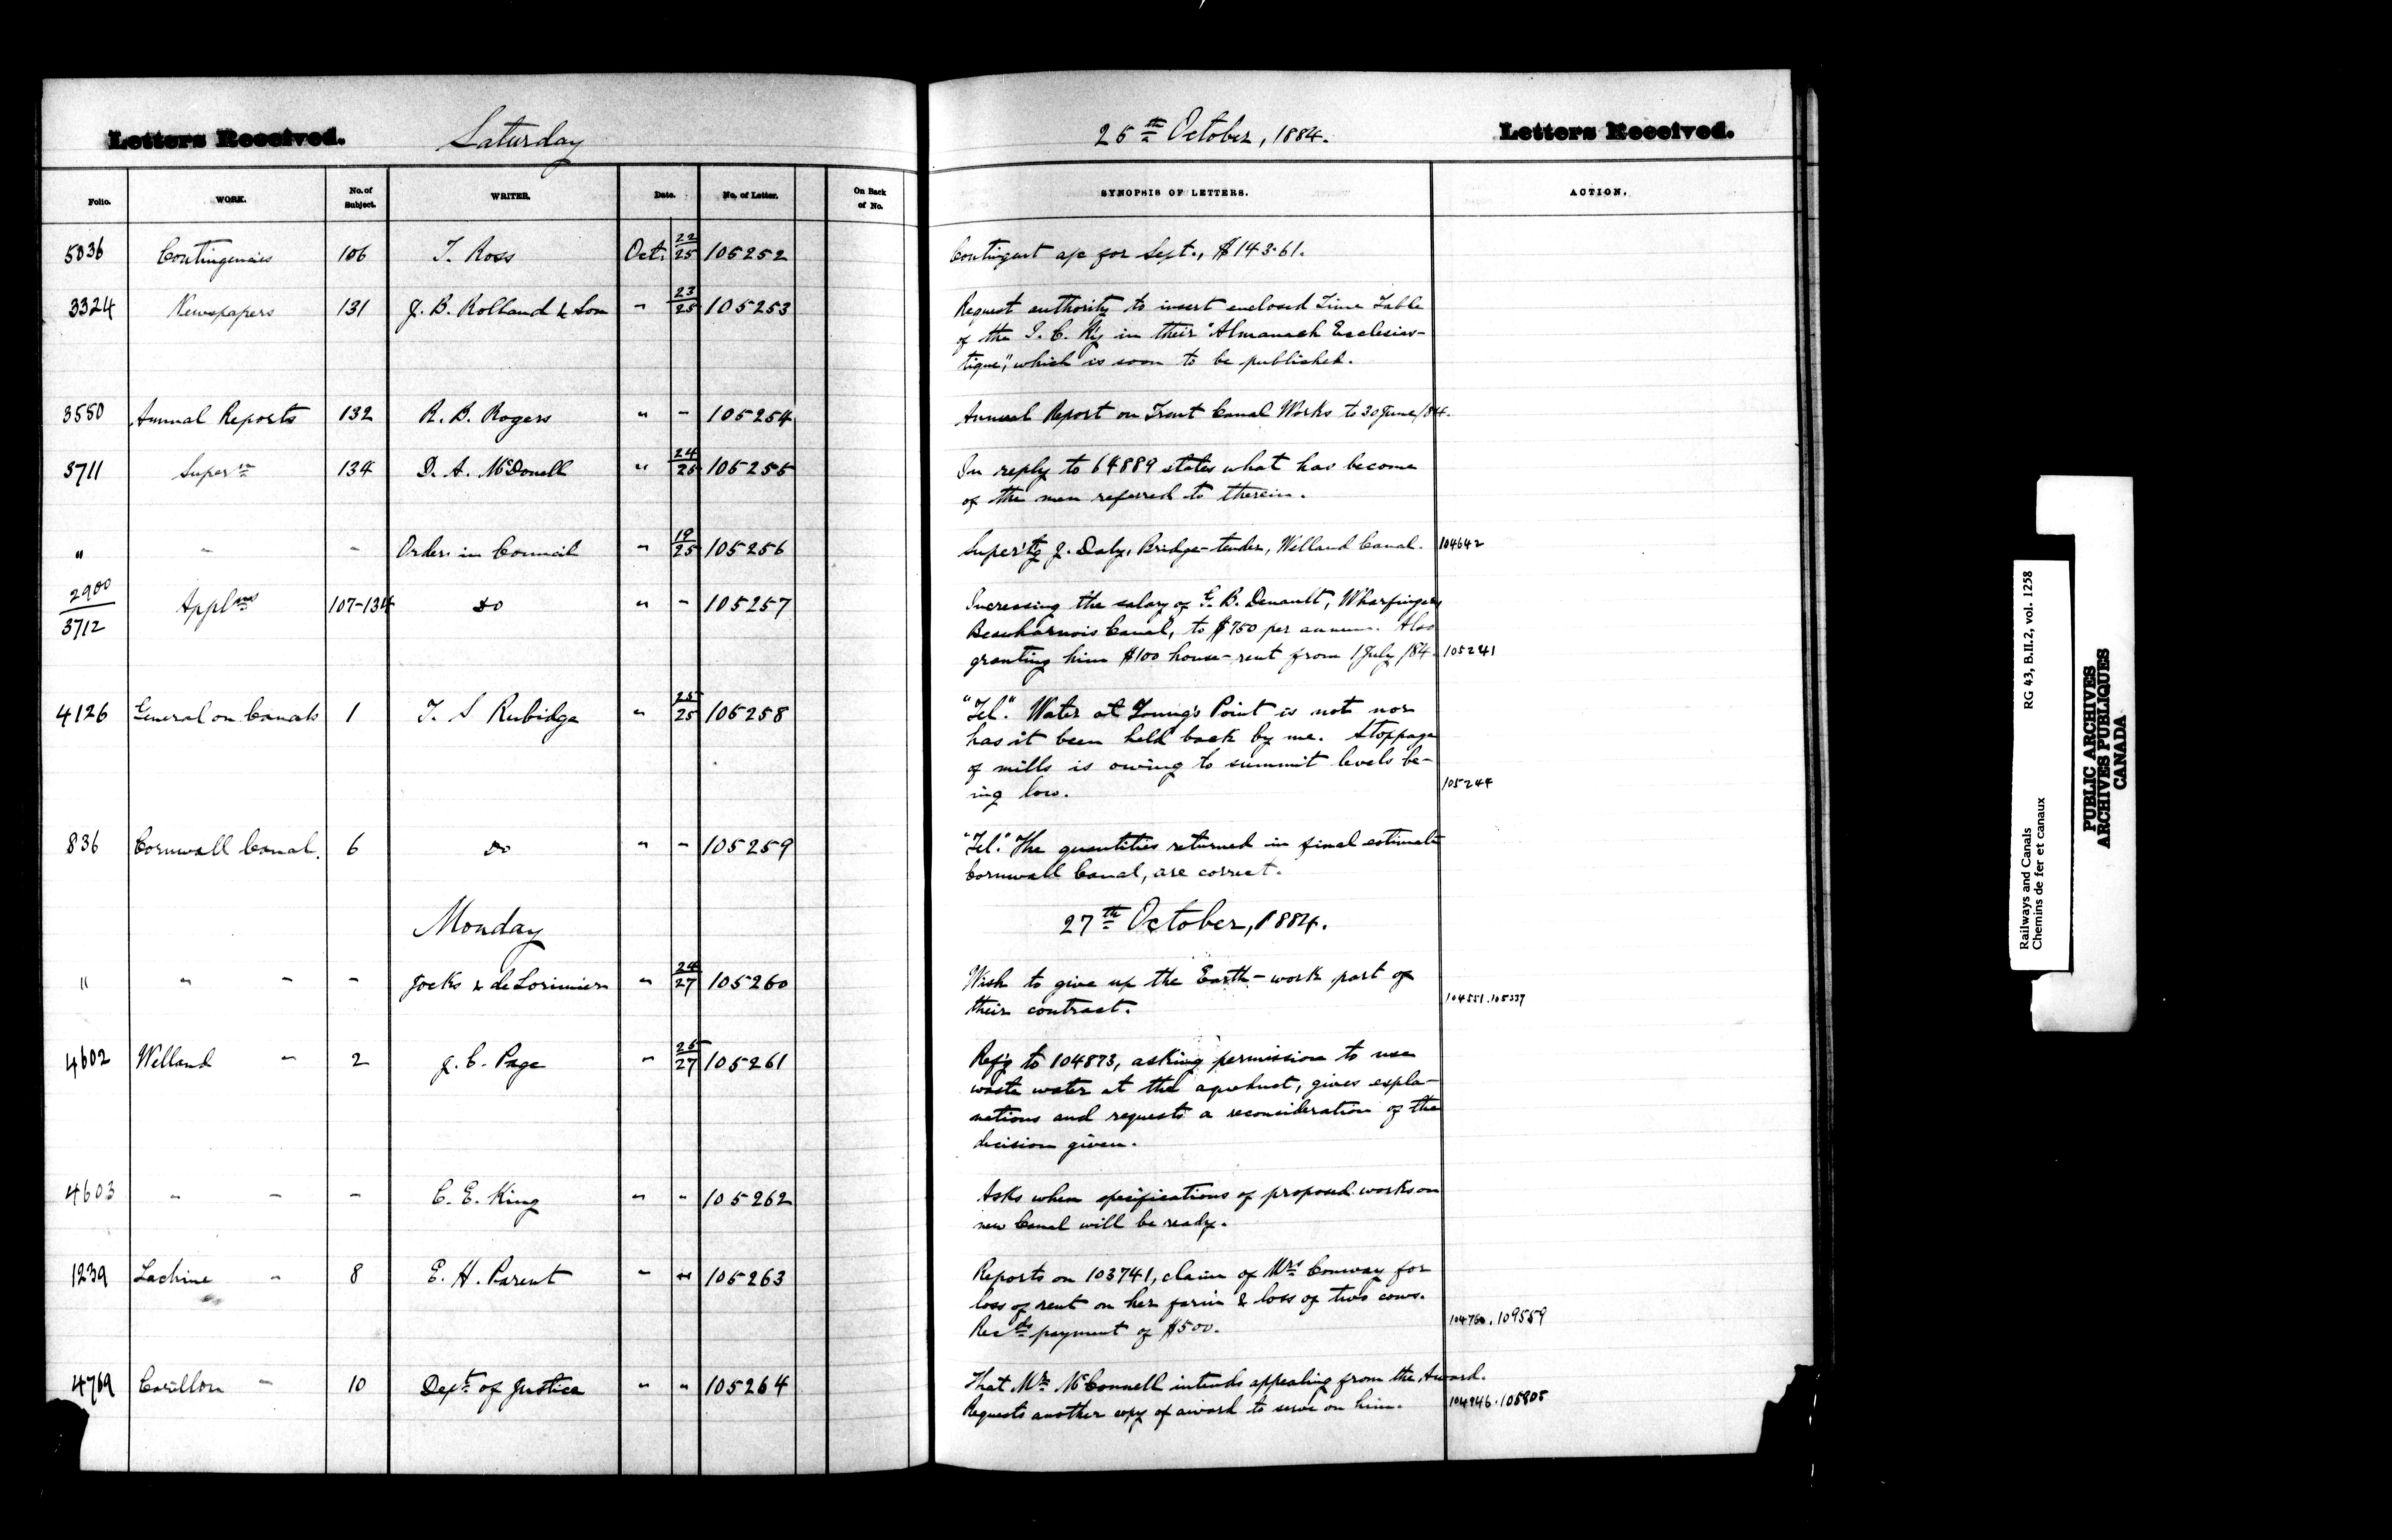 Letters Received. Saturday 25th October, 1884. Letters Received.
Folio. WORK. No. of Subject. WRITER. Date. No. of Letter. On Back of No. SYNOPSIS OF LETTERS. ACTION.
5036 Contingencies 106 T. Ross Oct. 22/25 105252 Contingent a/c for Sept., $143.61.
3324 Newspapers 131 J. B. Rolland & Son " 23/25 105253 Request authority to insert enclosed Time Table
of the I. C. Ry in their "Almanach Ecclesias-
tique", which is soon to be published.
3550 Annual Reports 132 R. B. Rogers " - 105254 Annual Report on Trent Canal Works to 30 June/84.
3711 Super'n 134 D. A. McDonell " 24/25 105255 In reply to 64889 states what has become
of the men referred to therein.
" - - Order in Council " 19/25 105256 Super'tg J. Daly, Bridge-tender, Welland Canal. 104642
2900/3712 Applns 107-134 Do " - 105257 Increasing the salary of G. B. Denault, Wharfinger
Beauharnois Canal, to $750 per annum. Also
granting him $100 house-rent from 1 July /84. 105241
4126 General on Canals 1 T. S Rubidge " 25/25 105258 "Tel". Water at Young's Point is not nor
has it been held back by me. Stoppage
of mills is owing to summit levels be-
ing low. 105244
836 Cornwall Canal. 6 Do " - 105259 "Tel". The quantities returned in final estimate
Cornwall Canal, are correct.
Monday 27th October, 1884.
" " - - Jocks & de Lorimier " 24/27 105260 Wish to give up the Earth-work part of
their contract. 104551.105337
4602 Welland " 2 J. C. Page " 25/27 105261 Ref'g to 104873, asking permission to use
waste water at the aqueduct, gives expla-
nations and requests a reconsideration of the
decision given.
4603 - - - C. E. King " " 105262 Asks when specifications of proposed works on
new Canal will be ready.
1239 Lachine " 8 E. H. Parent " " 105263 Reports on 103741, claim of Mrs Conway for
loss of rent on her farm & loss of two cows.
Recds payment of $500. 104760.109559
4769 Carillon - 10 Dept of Justice " " 105264 That Mr McConnell intends appealing from the Award.
Requests another copy of award to serve on him. 104946.105805
Railways and Canals RG 43, B.II.2, vol. 1258
Chemins de fer et canaux
PUBLIC ARCHIVES
ARCHIVES PUBLIQUES
CANADA